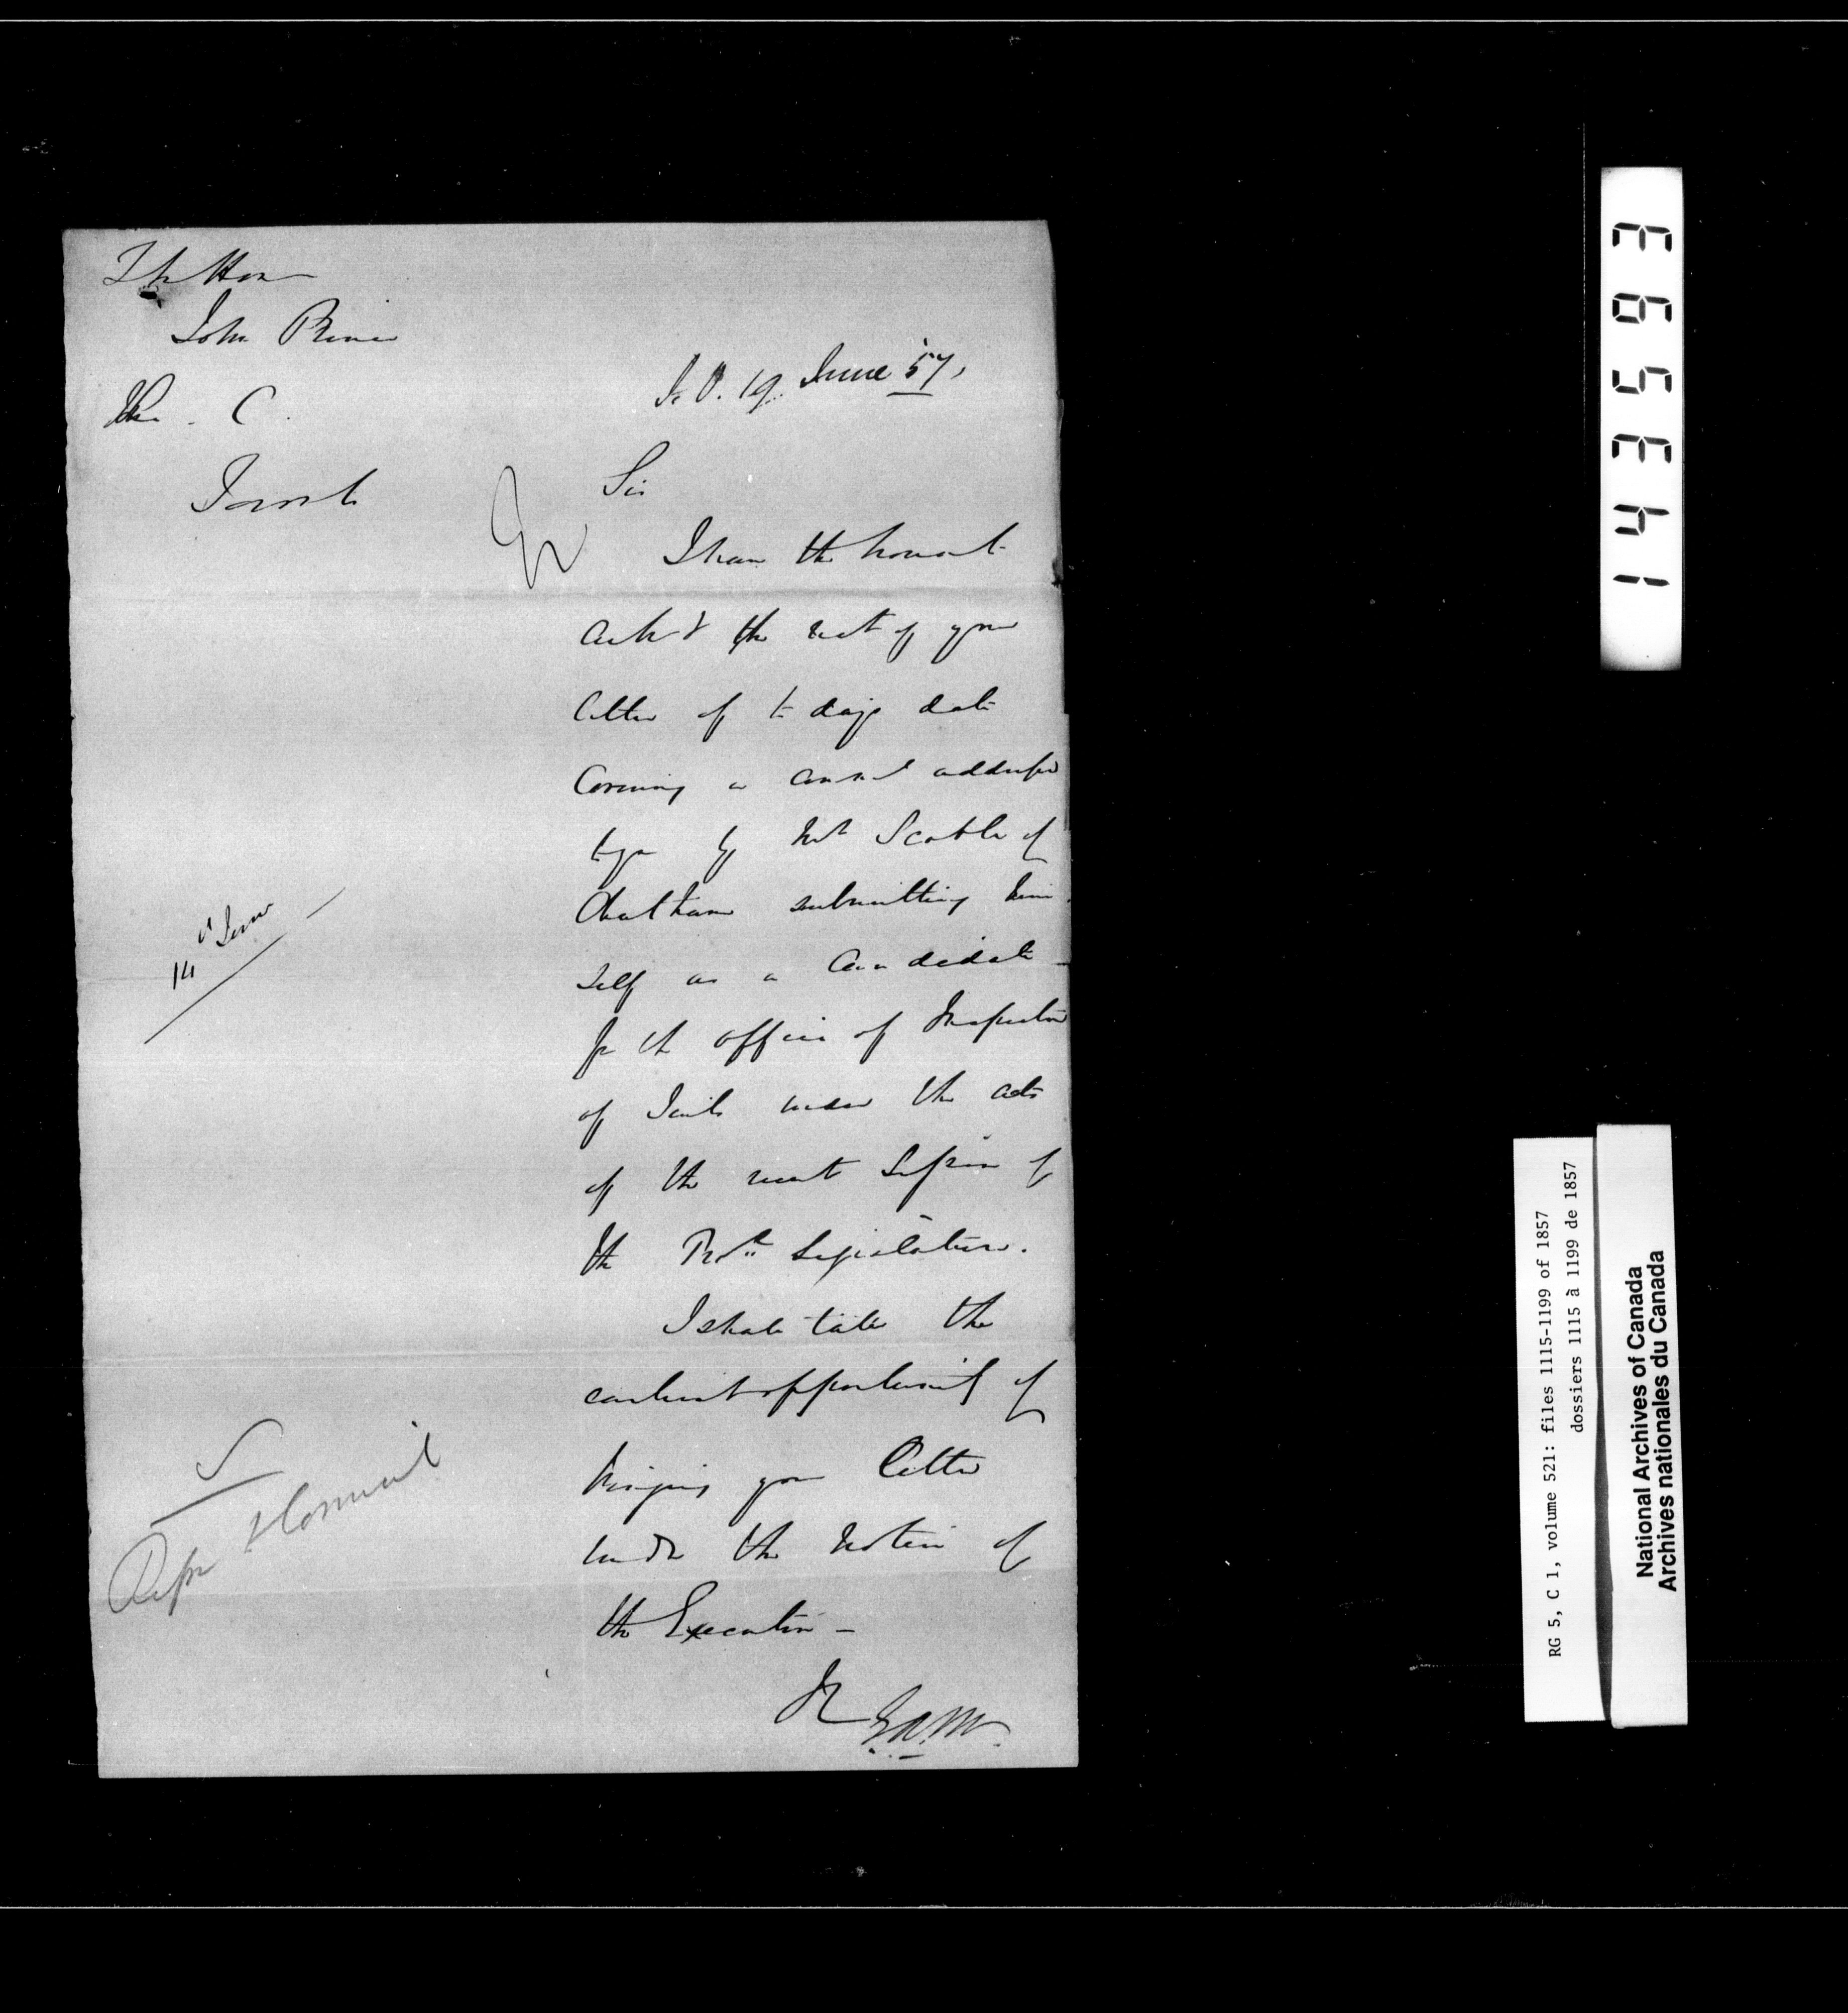 The Hon
John Prince
C.
Toronto
S. O. 19. June 57,
Sir
I have the honor to
ackn the rect of your
letter of to days date
covering a addressed
to you by Mr Scoble of
Chatham submitting him
self as a Candidate
for the office of Inspector
of Jails under the acts
of the recent Session of
the Legislature.
I shall take the
earliest opportunity of
bringing your Letter
under the notice of
the Executive –
14
E.A.M.
143593
RG 5, C 1, volume 521: files 1115-1199 of 1857
dossiers 1115 à 1199 de 1857
National Archives of Canada
Archives nationales du Canada